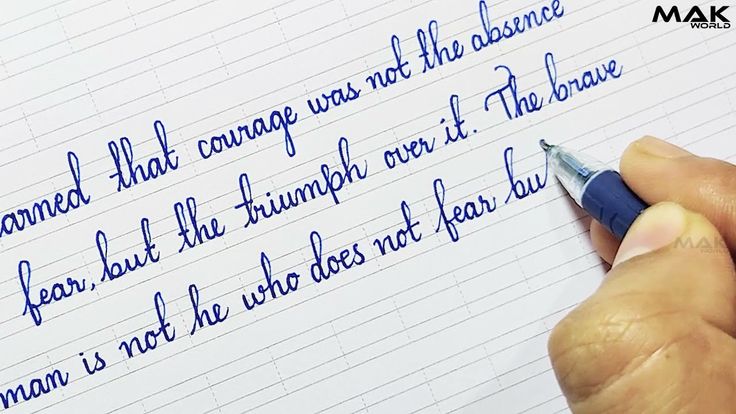 MAK
WORLD
arned that courage was not the absence
fear, but the triumph over it. The brave
man is not he who does not fear bu
MAK